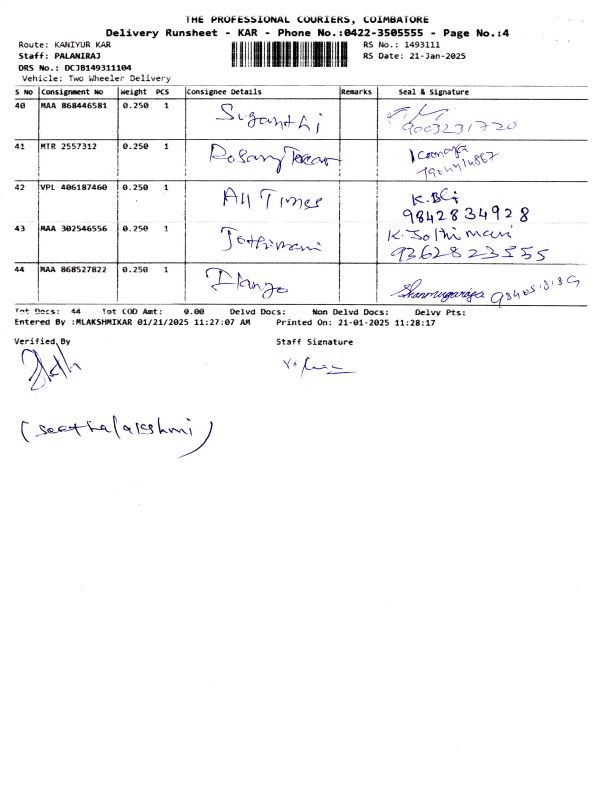 THE PROFESSIONAL COURIERS, COIMBATORE
Delivery Runsheet - KAR - Phone No.:0422-3505555 - Page No.:4
Route: KANIYUR KAR RS No.: 1493111
Staff: PALANIRAJ RS Date: 21-Jan-2025
DRS No.: DCJB149311104
Vehicle: Two Wheeler Delivery
S No Consignment No Weight PCS Consignee Details Remarks Seal & Signature
40 MAA 868446581 0.250 1 Suganthi 9003231720
41 MTR 2557312 0.250 1 Rosary
42 VPL 406187460 0.250 1 All Times
9842834928
43 MAA 302546556 0.250 1 Jothimani K. Jothimani
9362823555
44 MAA 868527822 0.250 1 Ilango Shanmugaraja
Tot Docs: 44 Tot COD Amt: 0.00 Delvd Docs: Non Delvd Docs: Delvy Pts:
Entered By :MLAKSHMIKAR 01/21/2025 11:27:07 AM Printed On: 21-01-2025 11:28:17
Verified By Staff Signature
(Seethalakshmi)